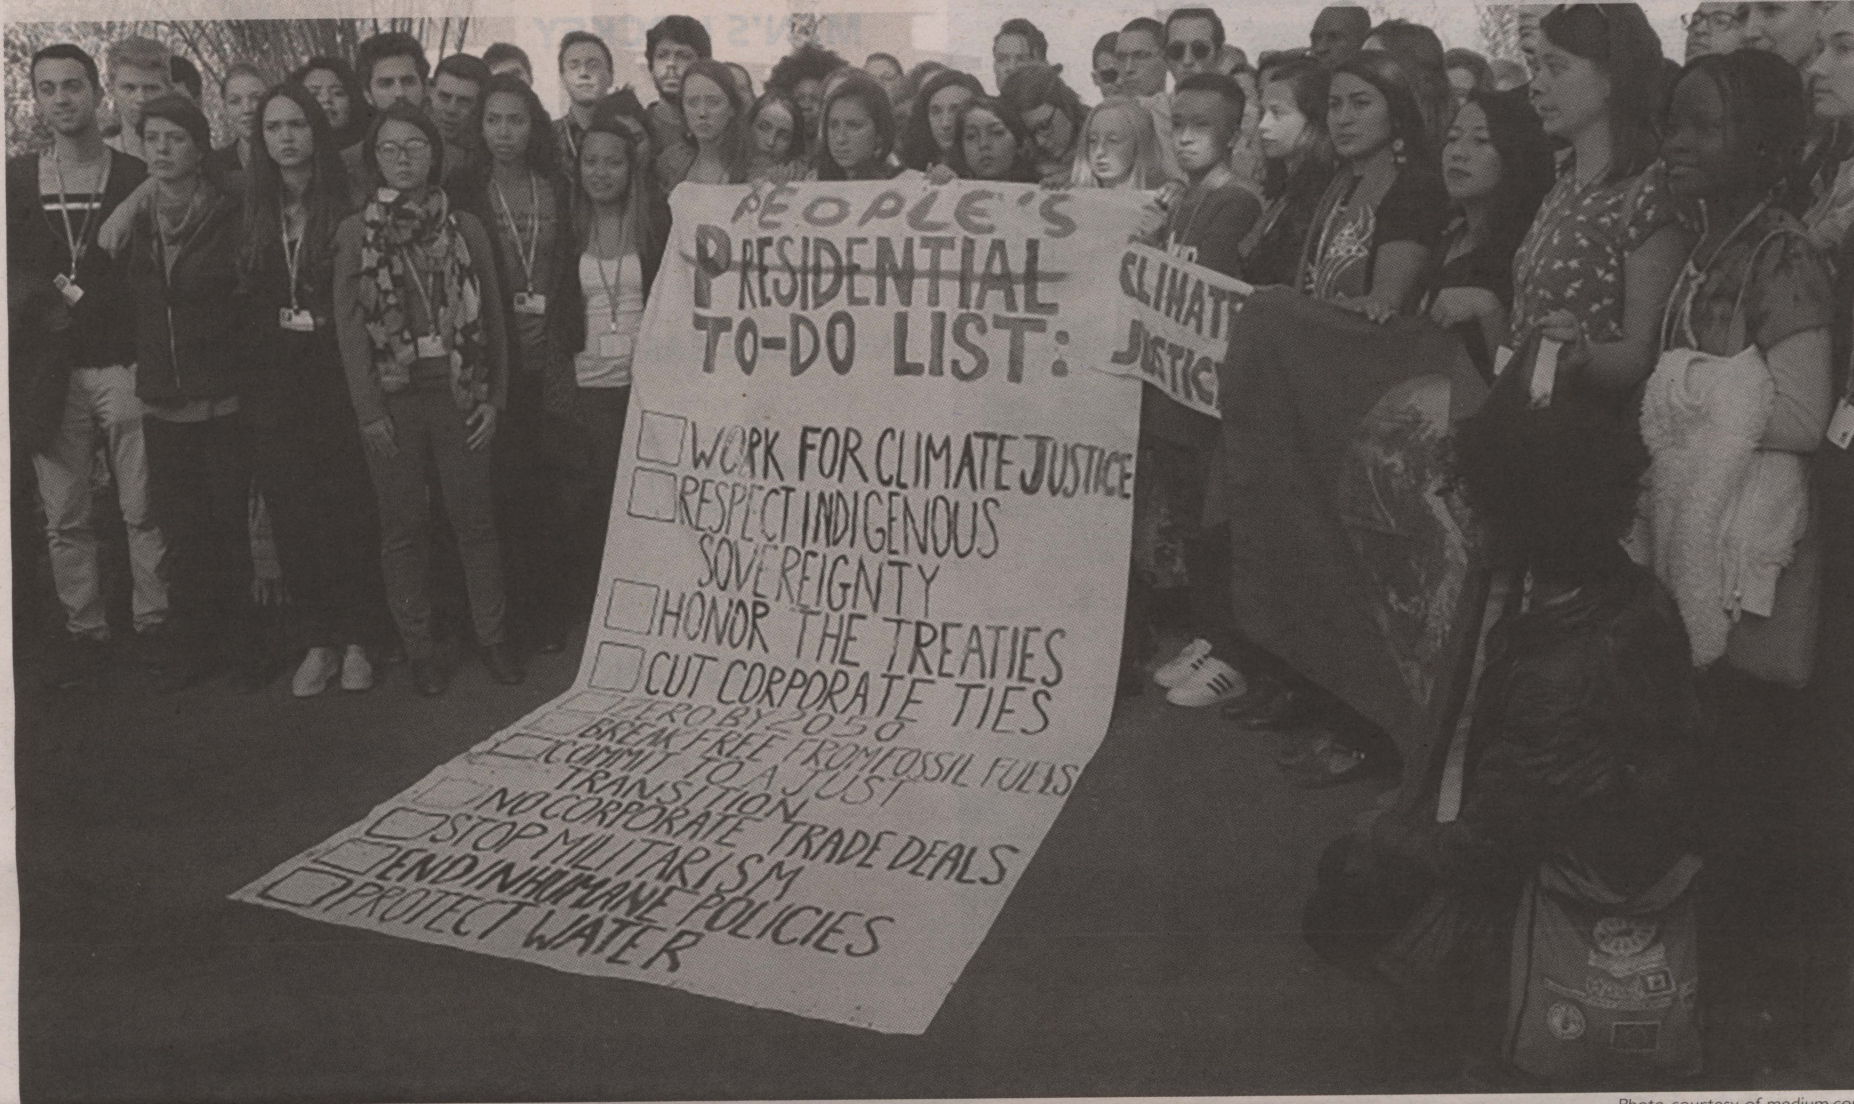 PEOPLE'S
PRESIDENTIAL
TO-DO LIST:
CLIMATE
JUSTICE
WORK FOR CLIMATE JUSTICE
RESPECT INDIGENOUS
SOVEREIGNTY
HONOR THE TREATIES
CUT CORPORATE TIES
ZERO BY 2050
BREAK FREE FROM FOSSIL FUELS
COMMIT TO A JUST
TRANSITION
NO CORPORATE TRADE DEALS
STOP MILITARISM
END INHUMANE POLICIES
PROTECT WATER
Photo courtesy of medium.com